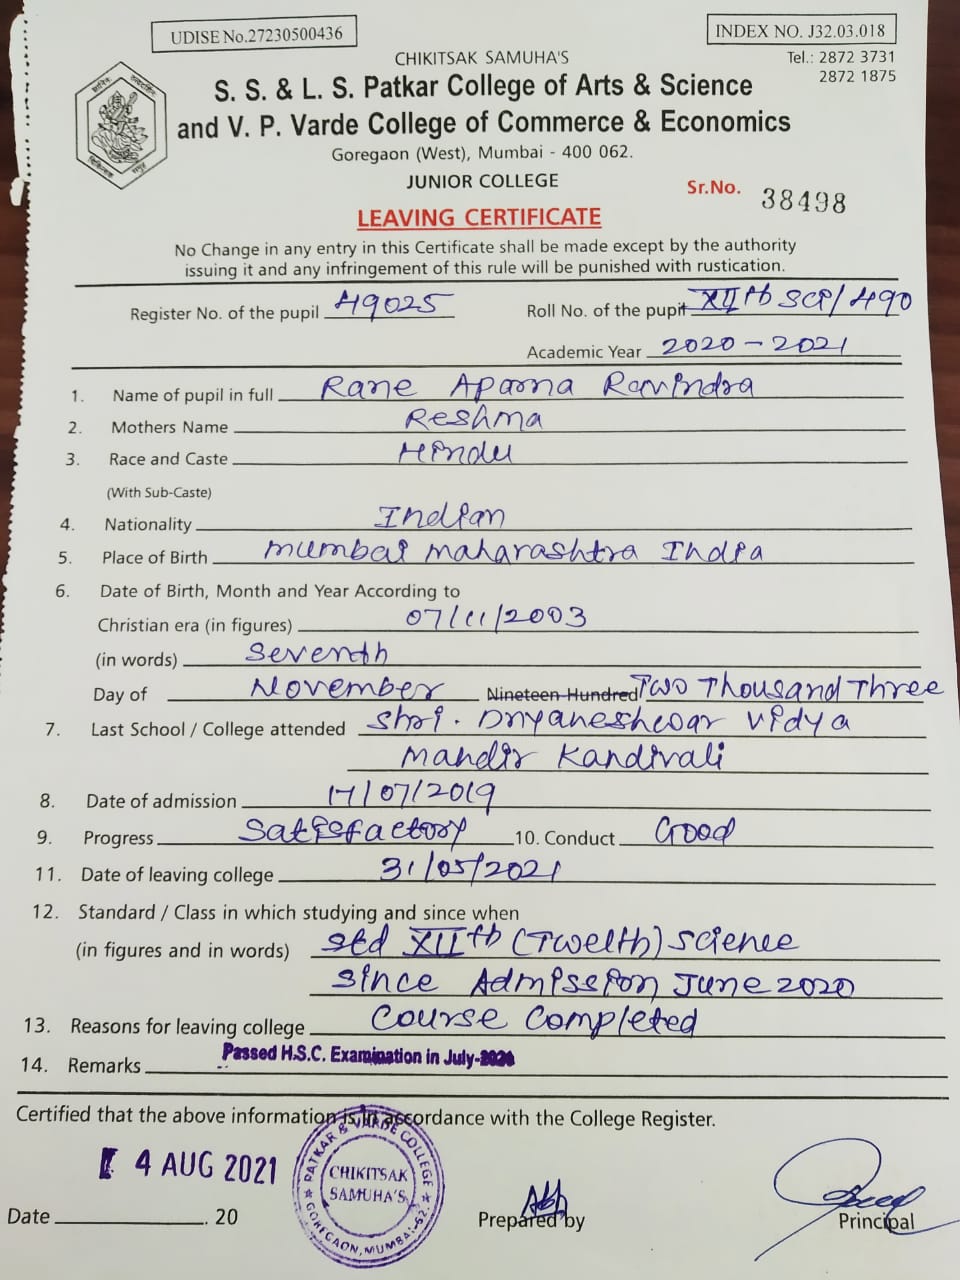 UDISE No.27230500436
INDEX NO. J32.03.018
CHIKITSAK SAMUHA'S
Tel.: 2872 3731
2872 1875
S. S. & L. S. Patkar College of Arts & Science
and V. P. Varde College of Commerce & Economics
Goregaon (West), Mumbai - 400 062.
JUNIOR COLLEGE
Sr.No. 38498
LEAVING CERTIFICATE
No Change in any entry in this Certificate shall be made except by the authority
issuing it and any infringement of this rule will be punished with rustication.
Register No. of the pupil 49025
Roll No. of the pupil XIIth SCP/490
Academic Year 2020-2021
1. Name of pupil in full Rane Aparna Ravindra
2. Mothers Name Reshma
3. Race and Caste Hindu
(With Sub-Caste)
4. Nationality Indian
5. Place of Birth Mumbai Maharashtra India
6. Date of Birth, Month and Year According to
Christian era (in figures) 07/11/2003
(in words) Seventh
Day of November Nineteen Hundred Two Thousand Three
7. Last School / College attended Shri. Dnyaneshwar Vidya
Mandir Kandivali
8. Date of admission 17/07/2019
9. Progress Satisfactory 10. Conduct Good
11. Date of leaving college 31/05/2021
12. Standard / Class in which studying and since when
(in figures and in words) Std XIIth (Twelth) Science
Since Admission June 2020
13. Reasons for leaving college Course Completed
14. Remarks Passed H.S.C. Examination in July-
Certified that the above information is in accordance with the College Register.
4 AUG 2021
PATKAR & VARDE COLLEGE
CHIKITSAK
SAMUHA'S
GOREGAON, MUMBAI-62.
Date 20
Prepared by
Principal